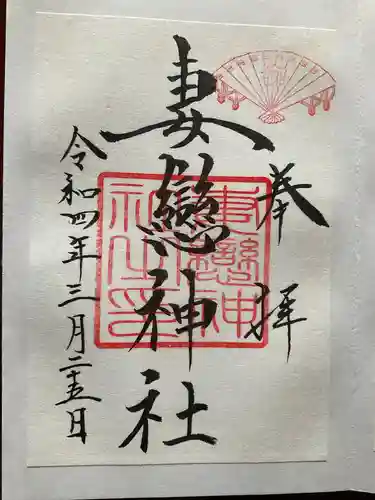 奉拝
妻戀神社
妻戀神社之印
令和四年三月二十五日